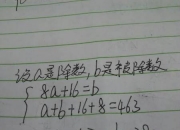 设a是除数,b是被除数
8a+16=b
a+b+16+8=463